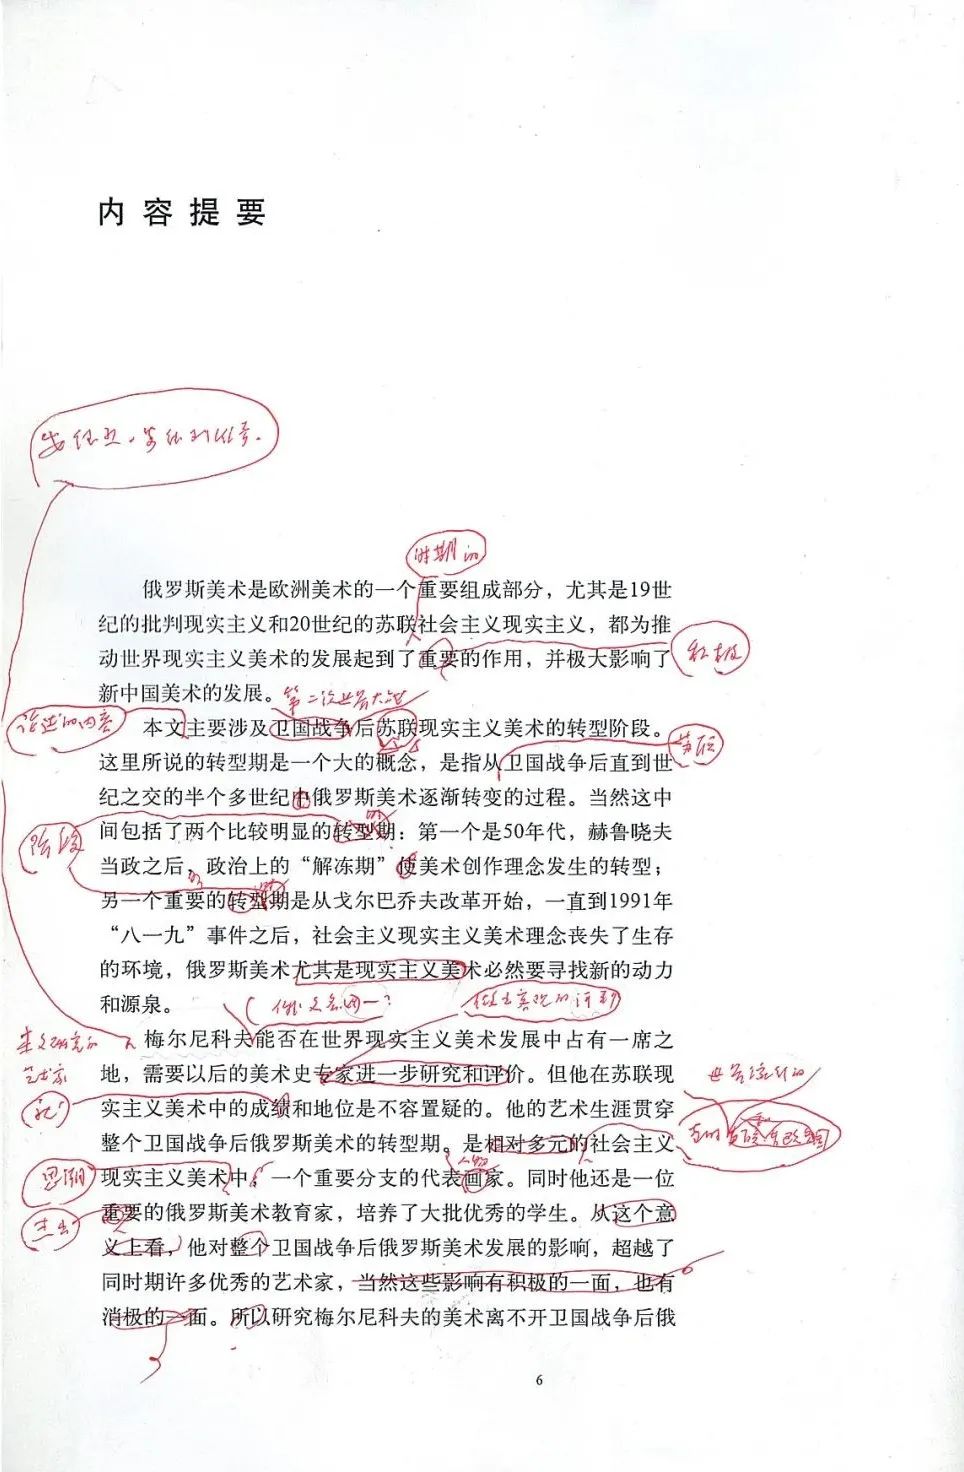 内容提要
时期的
俄罗斯美术是欧洲美术的一个重要组成部分，尤其是19世
纪的批判现实主义和20世纪的苏联社会主义现实主义，都为推
动世界现实主义美术的发展起到了重要的作用，并极大影响了
积极
新中国美术的发展。
第二次世界大战
论述的内容
本文主要涉及卫国战争后苏联现实主义美术的转型阶段。
这里所说的转型期是一个大的概念，是指从卫国战争后直到世
纪之交的半个多世纪中俄罗斯美术逐渐转变的过程。当然这中
间包括了两个比较明显的转型期：第一个是50年代，赫鲁晓夫
阶段
当政之后，政治上的“解冻期”使美术创作理念发生的转型；
另一个重要的转型期是从戈尔巴乔夫改革开始，一直到1991年
“八一九”事件之后，社会主义现实主义美术理念丧失了生存
的环境，俄罗斯美术尤其是现实主义美术必然要寻找新的动力
和源泉。
梅尔尼科夫能否在世界现实主义美术发展中占有一席之
艺术家
地，需要以后的美术史专家进一步研究和评价。但他在苏联现
实主义美术中的成绩和地位是不容置疑的。他的艺术生涯贯穿
整个卫国战争后俄罗斯美术的转型期。是相对多元的社会主义
人物
思潮
现实主义美术中，一个重要分支的代表画家。同时他还是一位
杰出
重要的俄罗斯美术教育家，培养了大批优秀的学生。从这个意
义上看，他对整个卫国战争后俄罗斯美术发展的影响，超越了
同时期许多优秀的艺术家，当然这些影响有积极的一面，也有
消极的一面。所以研究梅尔尼科夫的美术离不开卫国战争后俄
6